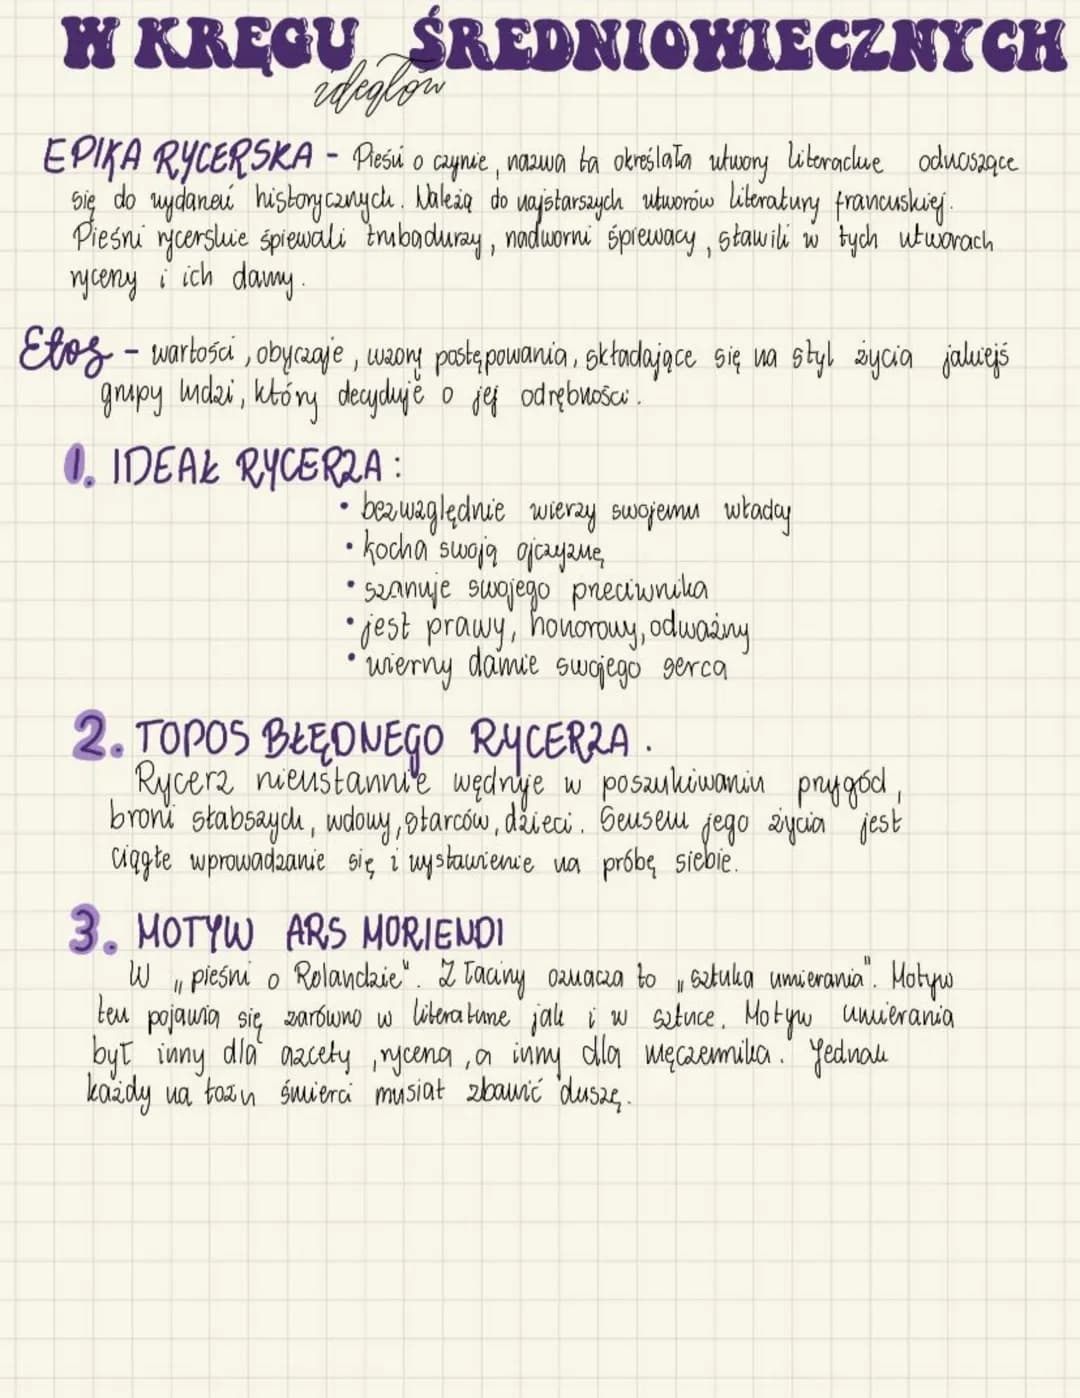 W KRĘGU ŚREDNIOWIECZNYCH
ideałów
EPIKA RYCERSKA - Pieśń o czynie, nazwa ta określała utwory literackie odnoszące
się do wydarzeń historycznych. Należą do najstarszych utworów literatury francuskiej.
Pieśni rycerskie śpiewali trubadurzy, nadworni śpiewacy, sławili w tych utworach
rycerzy i ich damy.
Etos - wartości, obyczaje, wzory postępowania, składające się na styl życia jakiejś
grupy ludzi, który decyduje o jej odrębności.
1. IDEAŁ RYCERZA:
• bezwzględnie wierzy swojemu władcy
• kocha swoją ojczyznę
• szanuje swojego przeciwnika
• jest prawy, honorowy, odważny
• wierny damie swojego serca
2. TOPOS BŁĘDNEGO RYCERZA.
Rycerz nieustannie wędruje w poszukiwaniu przygód,
broni słabszych, wdowy, starców, dzieci. Sensem jego życia jest
ciągłe wprowadzanie się i wystawienie na próbę siebie.
3. MOTYW ARS MORIENDI
W „pieśni o Rolandzie". Z łaciny oznacza to „sztuka umierania". Motyw
ten pojawia się zarówno w literaturze jak i w sztuce. Motyw umierania
był inny dla ascety, rycerza, a inny dla męczennika. Jednak
każdy na łożu śmierci musiał zbawić duszę.